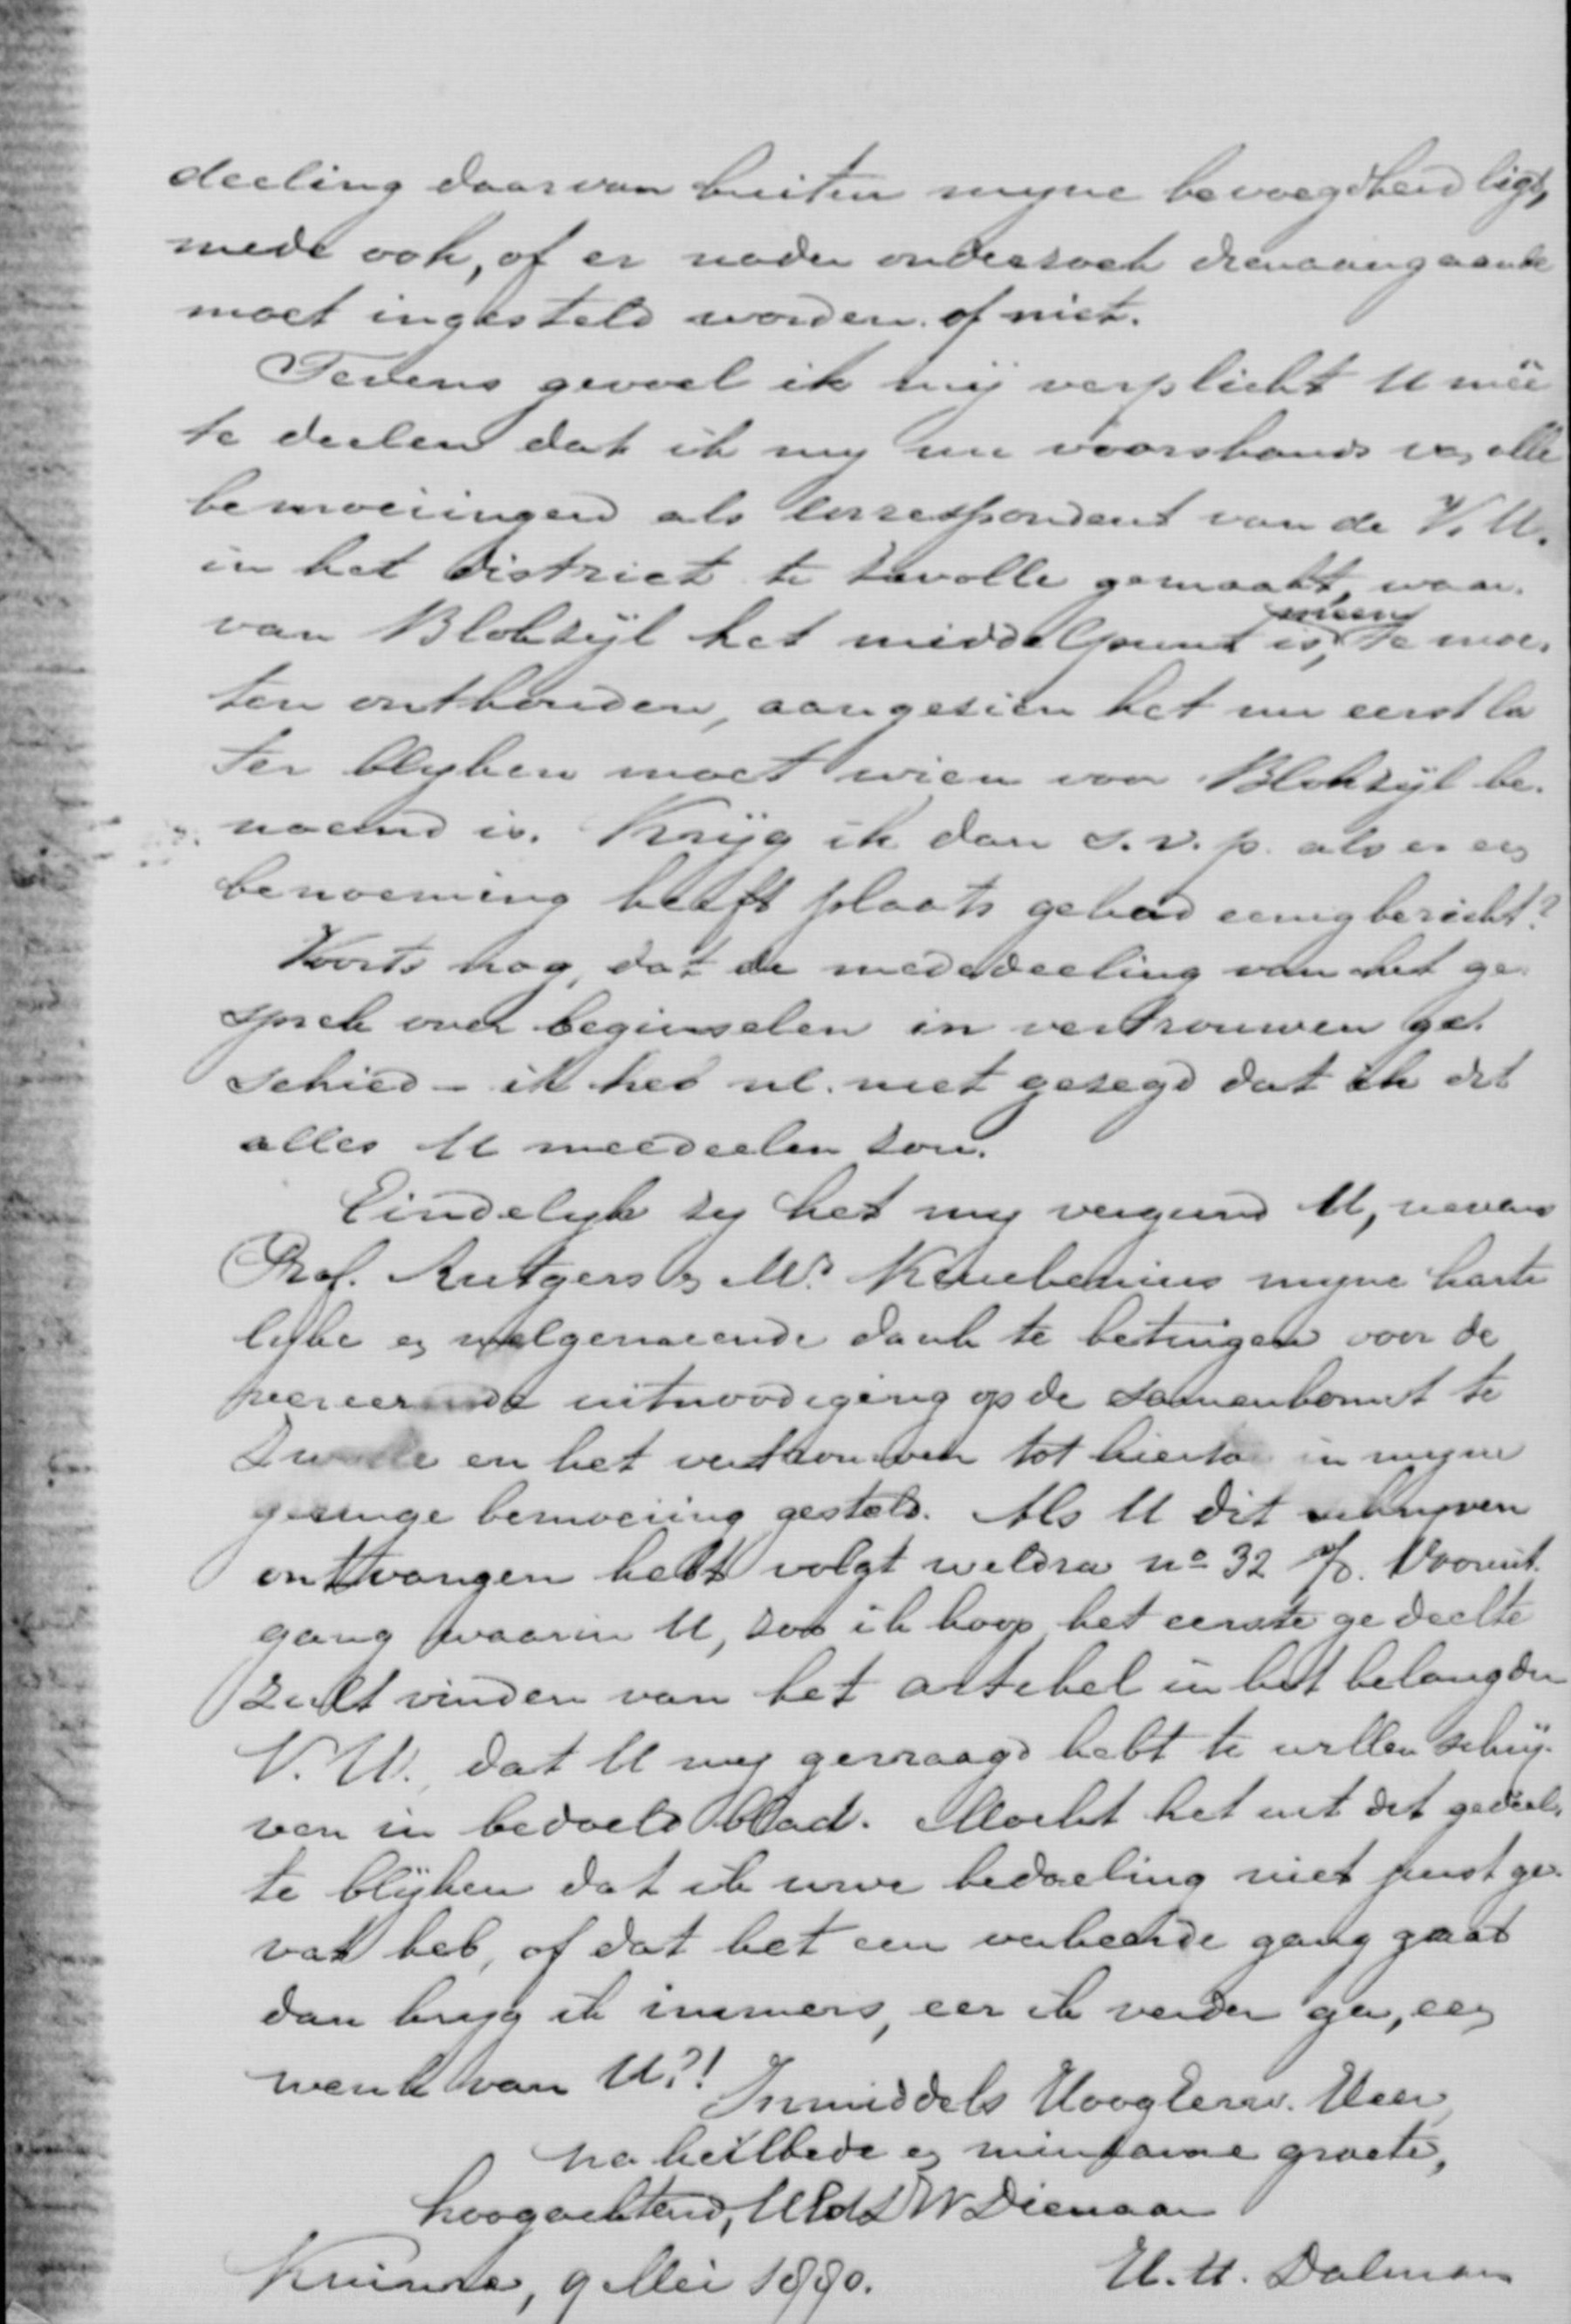 deeling daarvan buiten myne bevoegdheid ligt,
mede ook, of er nader onderzoek dienaangaande
moet ingesteld worden of niet.
Tevens gevoel ik mij verplicht U meê
te deelen dat ik my nu voorshands van alle
bemoeiingen als correspondent van de V. U.
in het district te Zwolle gemaakt, waar-
van Blokzijl het middelpunt is, meen te moe-
ten onthouden, aangezien het nu eerst la
ter blyken moet wien voor Blokzijl be-
noemd is. Krijg ik dan s.v.p. als er een
benoeming heeft plaats gehad eenig bericht?
Voorts nog, dat de mededeeling van het ge-
sprek over beginselen in vertrouwen ge-
schied - ik heb nl. niet gezegd dat ik dit
alles U meedeelen zou.
Eindelyk zy het my vergund U, nevens
Prof. Rutgers en Mr. Keuchenius myne harte
lyke en welgemeende dank te betuigen voor de
vereerende uitnoodiging op de samenkomst te
Zwolle en het vertrouwen tot hiertoe in myne
geringe bemoeiing gesteld. Als U dit schryven
ontvangen hebt volgt weldra no 32 Vooruit-
gang waarin U, zoo ik hoop, het eerste gedeelte
zult vinden van het artikel in het belang der
V. U., dat U my gevraagd hebt te willen schrij-
ven in bedoeld blad. Mocht het uit dit gedeel-
te blijken dat ik uwe bedoeling niet juist ge-
vat heb, of dat het een verkeerde gang gaat
dan kryg ik immers, eer ik verder ga, een
wenk van U?! Inmiddels HoogEerw. Heer,
na heilbede en minzame groete,
hoogachtend, UEd Dienaar
Kuinre, 9 Mei 1890. H. U. Dalman